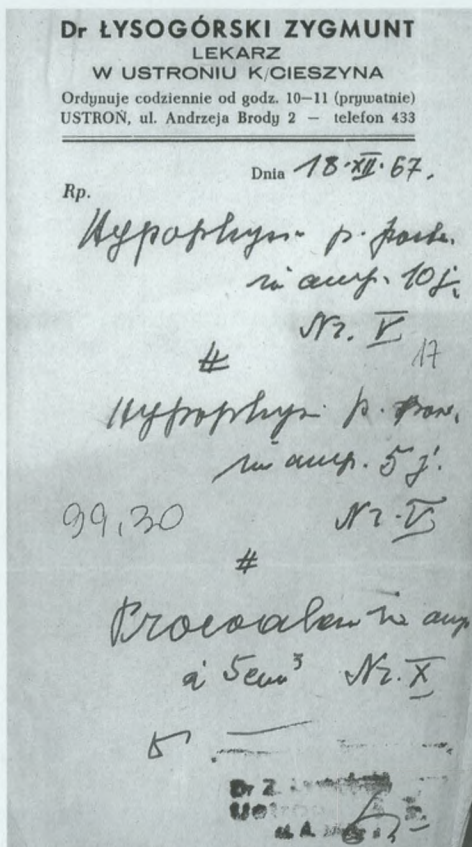 Dr ŁYSOGÓRSKI ZYGMUNT
LEKARZ
W USTRONIU K/CIESZYNA
Ordynuje codziennie od godz. 10—11 (prywatnie)
USTROŃ, ul. Andrzeja Brody 2 — telefon 433
Dnia 18·XII·67.
Rp.
Hypophys. p. post.
in amp. 10 j.
Nr. V
17
#
Hypophys. p.
in amp. 5 j.
99,30 Nr. V
#
in amp
à 5cm³ Nr. X
Dr Z.